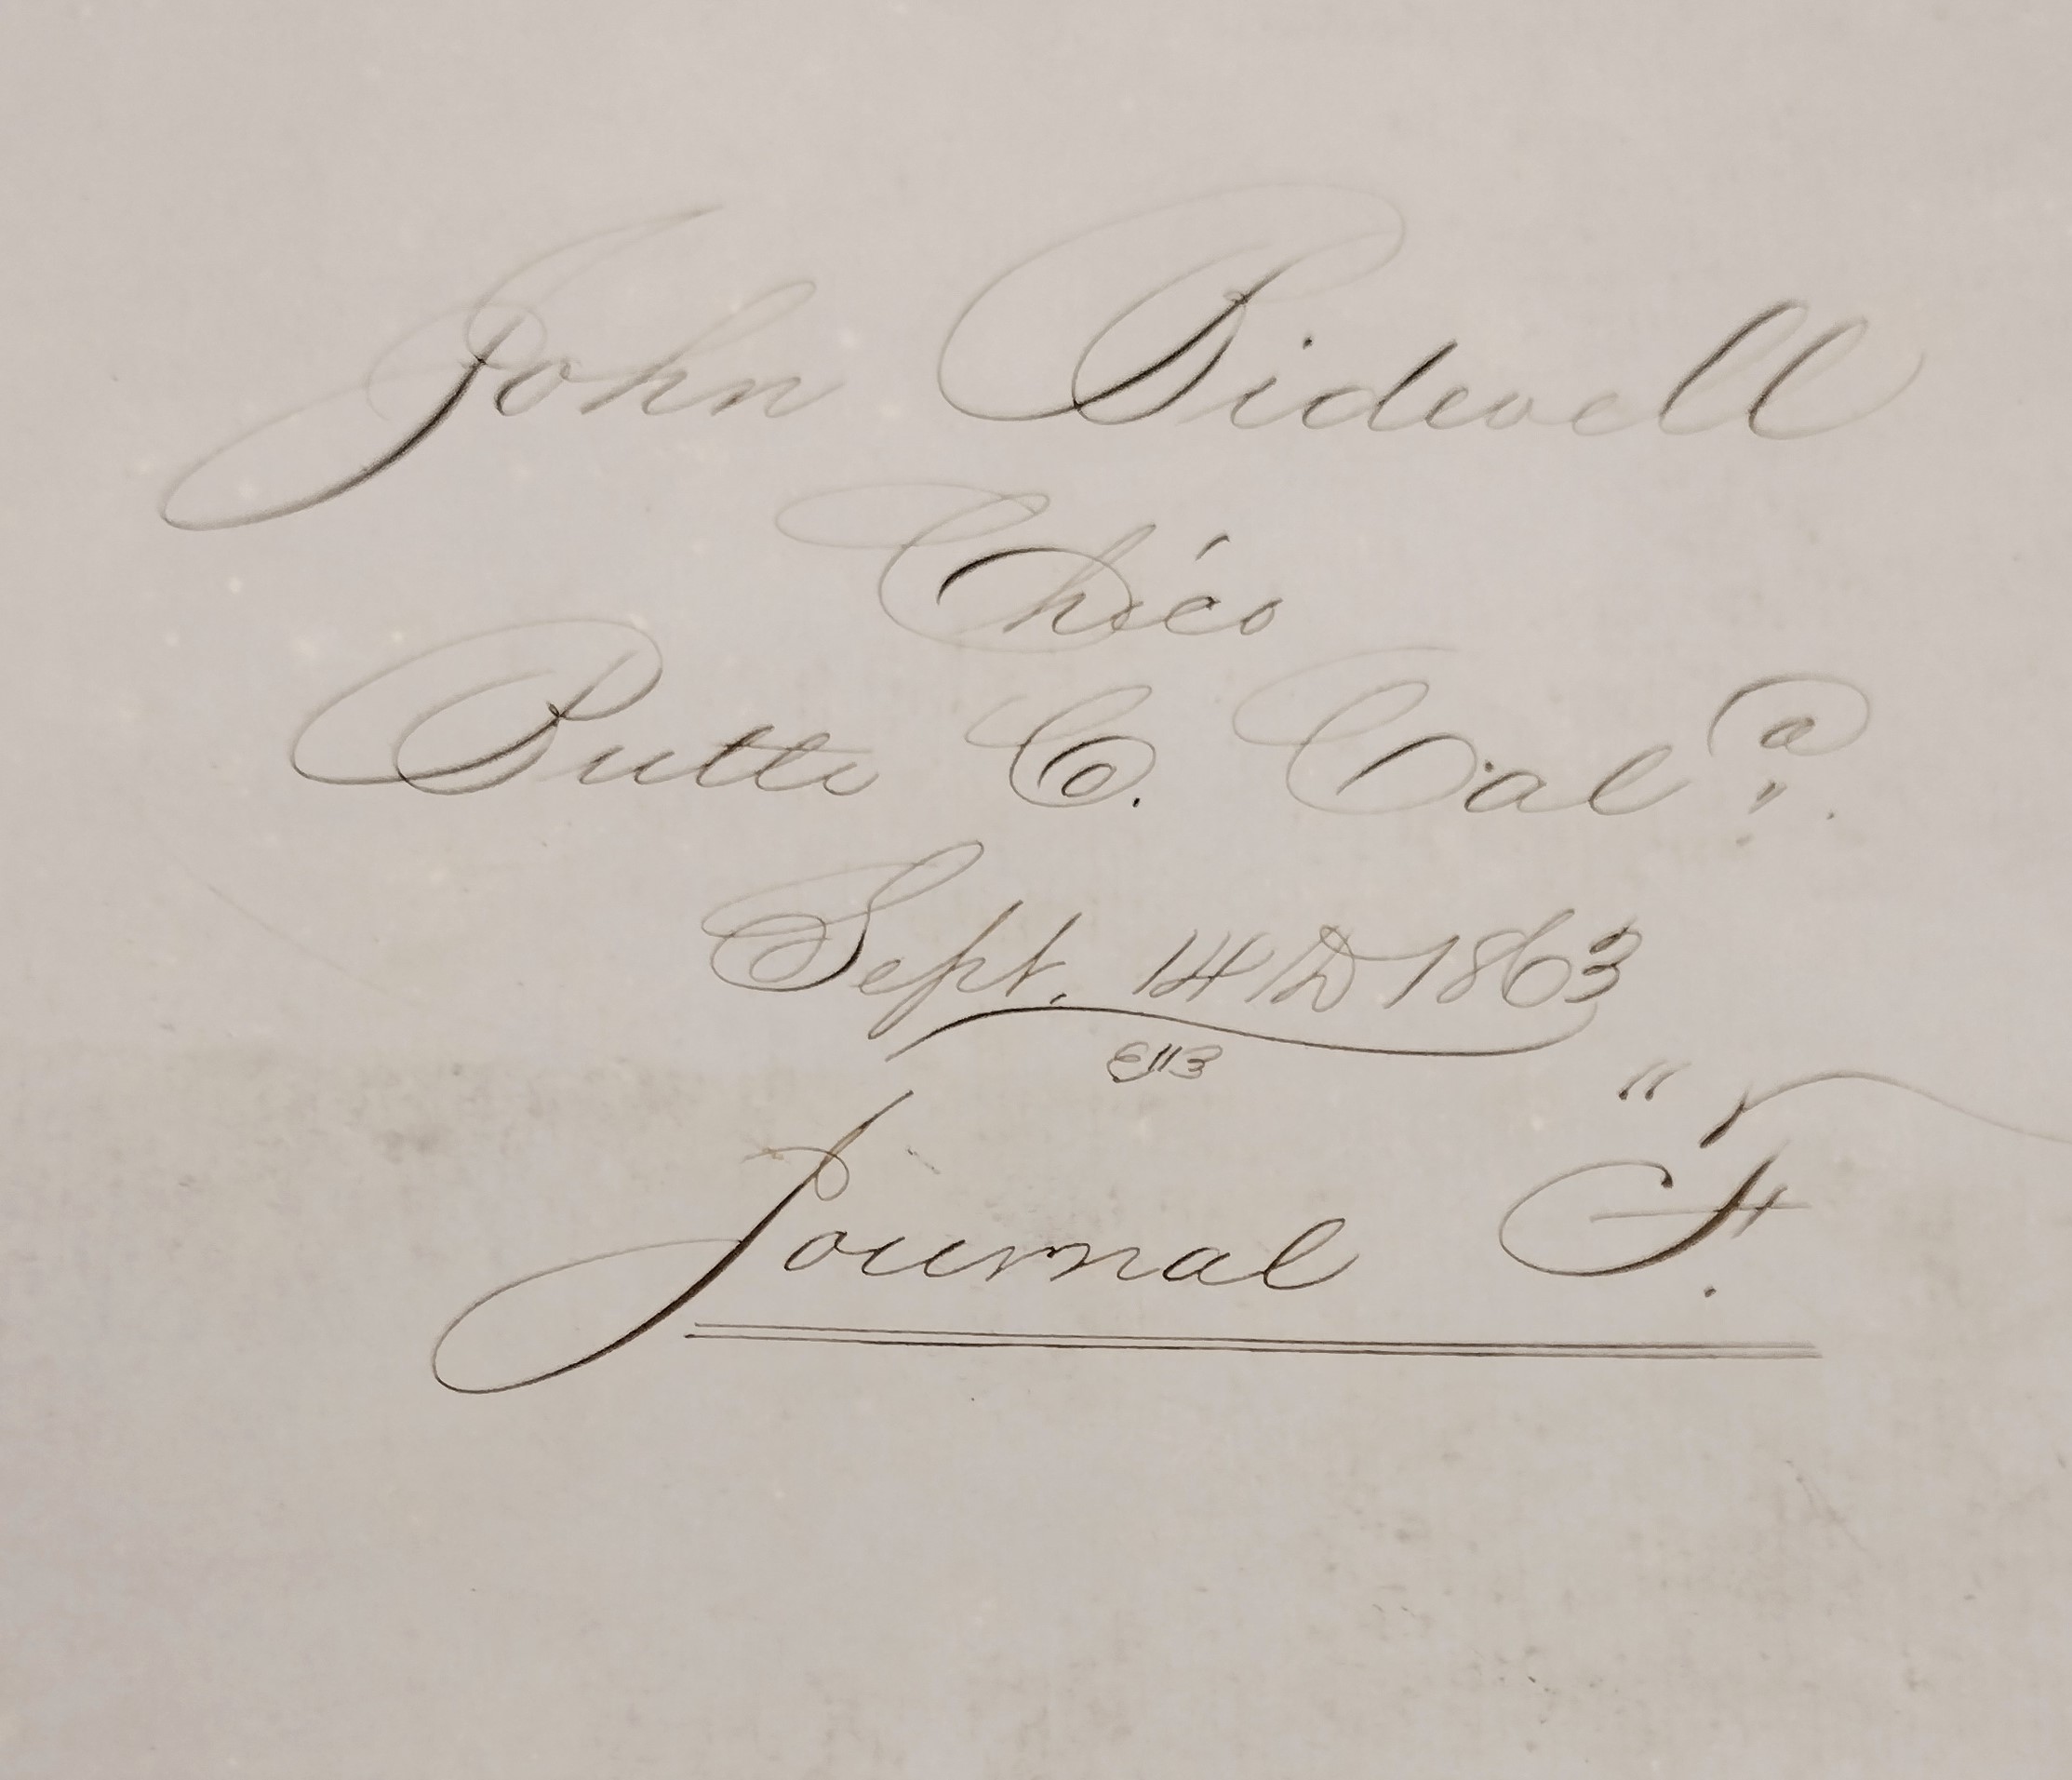 John Bidwell
Chico
Butte Co. Cal^a.
Sept. 14th 1863
Journal "F".